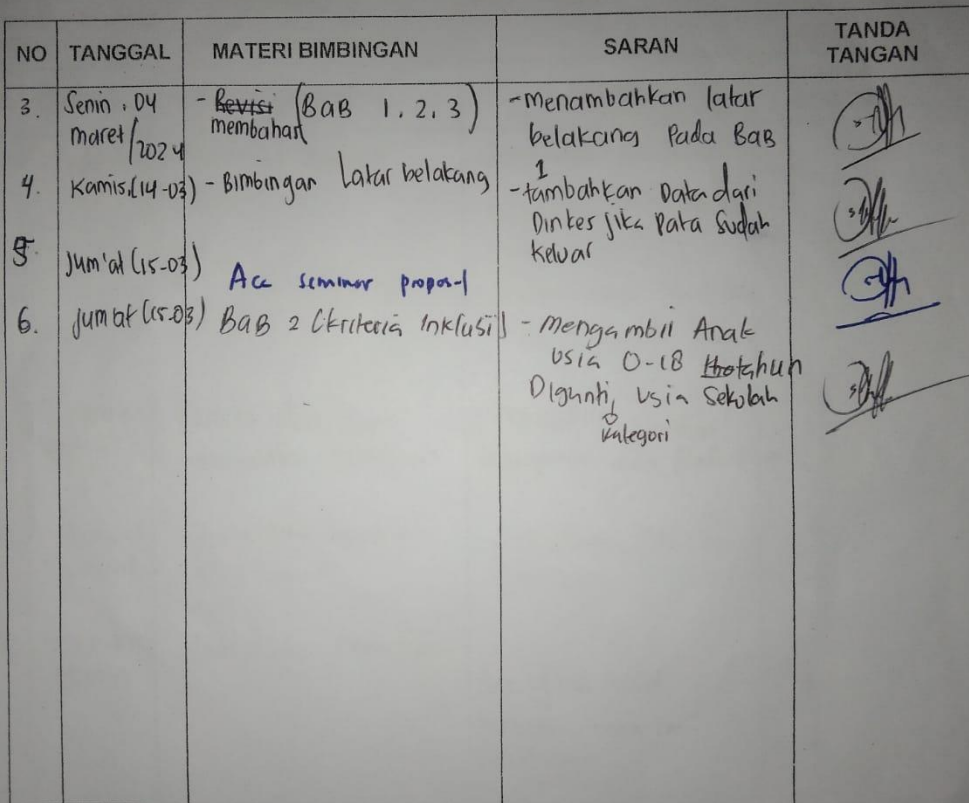 NO TANGGAL MATERI BIMBINGAN SARAN TANDA TANGAN
3. Senin, 04 - Revisi (BAB 1, 2, 3) - menambahkan latar
maret/2024 membahas belakang Pada BAB
1
4. Kamis, (14-03) - Bimbingan Latar belakang - tambahkan Data dari
Dinkes jika Data Sudah
Keluar
5. Jum'at (15-03)
Acc seminar proposal
6. Jumat (15-03) BAB 2 (kriteria Inklusi) - Mengambil Anak
usia 0-18 tahun
Diganti, usia Sekolah
kategori